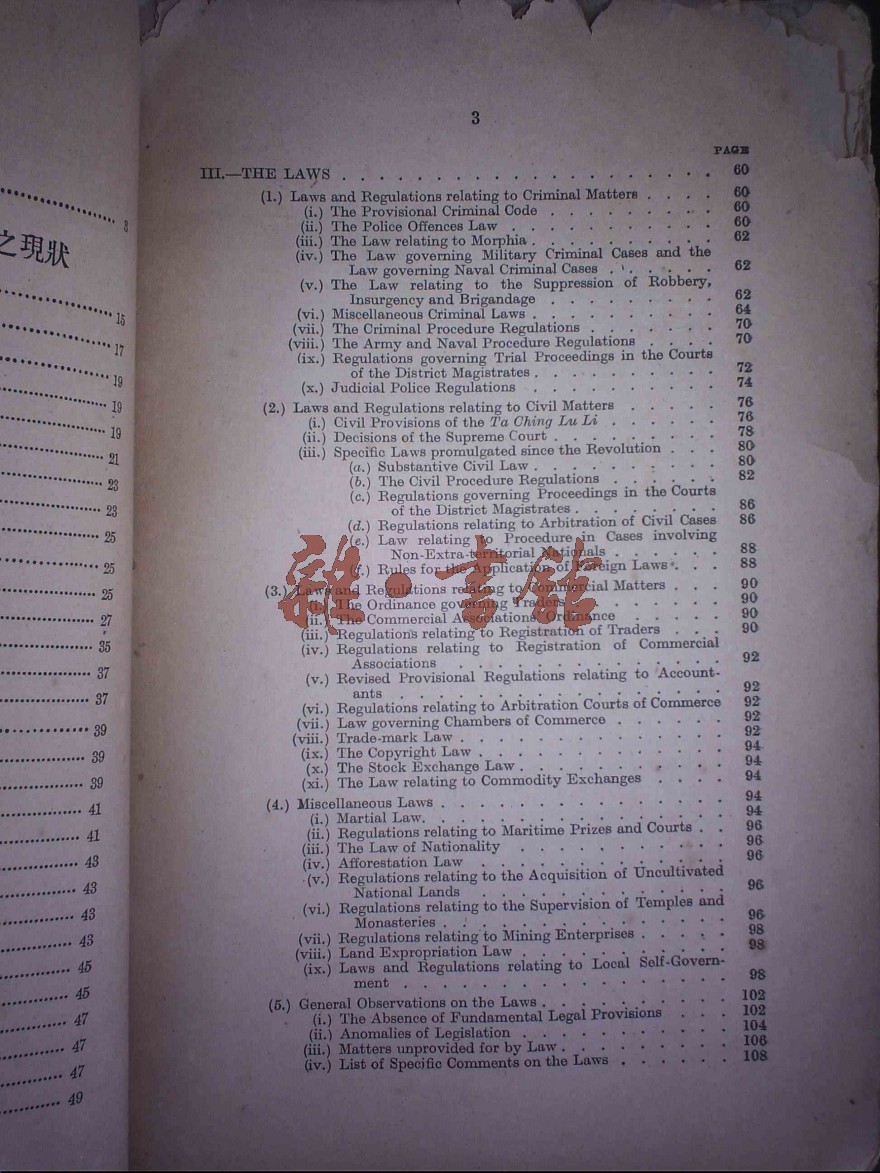 3
之現狀
15
17
19
19
19
21
23
23
25
25
25
27
35
37
37
39
39
39
41
41
43
43
43
43
45
45
47
47
47
49
3
PAGE
III.—THE LAWS . . . . . . . . . . . . . . . . . . . 60
(1.) Laws and Regulations relating to Criminal Matters . . . . 60
(i.) The Provisional Criminal Code . . . . . . . . . 60
(ii.) The Police Offences Law . . . . . . . . . . . 60
(iii.) The Law relating to Morphia . . . . . . . . . . 62
(iv.) The Law governing Military Criminal Cases and the
Law governing Naval Criminal Cases . . . . . . 62
(v.) The Law relating to the Suppression of Robbery,
Insurgency and Brigandage . . . . . . . . . 62
(vi.) Miscellaneous Criminal Laws . . . . . . . . . . 64
(vii.) The Criminal Procedure Regulations . . . . . . . 70
(viii.) The Army and Naval Procedure Regulations . . . . 70
(ix.) Regulations governing Trial Proceedings in the Courts
of the District Magistrates . . . . . . . . . . 72
(x.) Judicial Police Regulations . . . . . . . . . . 74
(2.) Laws and Regulations relating to Civil Matters . . . . . 76
(i.) Civil Provisions of the Ta Ching Lu Li . . . . . . 76
(ii.) Decisions of the Supreme Court . . . . . . . . . 78
(iii.) Specific Laws promulgated since the Revolution . . . 80
(a.) Substantive Civil Law . . . . . . . . . . 80
(b.) The Civil Procedure Regulations . . . . . . 82
(c.) Regulations governing Proceedings in the Courts
of the District Magistrates . . . . . . . . 86
(d.) Regulations relating to Arbitration of Civil Cases 86
(e.) Law relating to Procedure in Cases involving
Non-Extra-territorial Nationals . . . . . . 88
(f.) Rules for the Application of Foreign Laws . . . 88
(3.) Laws and Regulations relating to Commercial Matters . . . 90
(i.) The Ordinance governing Traders . . . . . . . . 90
(ii.) The Commercial Associations Ordinance . . . . . 90
(iii.) Regulations relating to Registration of Traders . . . 90
(iv.) Regulations relating to Registration of Commercial
Associations . . . . . . . . . . . . . . 92
(v.) Revised Provisional Regulations relating to Account-
ants . . . . . . . . . . . . . . . . . 92
(vi.) Regulations relating to Arbitration Courts of Commerce 92
(vii.) Law governing Chambers of Commerce . . . . . . 92
(viii.) Trade-mark Law . . . . . . . . . . . . . . 92
(ix.) The Copyright Law . . . . . . . . . . . . . 94
(x.) The Stock Exchange Law . . . . . . . . . . . 94
(xi.) The Law relating to Commodity Exchanges . . . . 94
(4.) Miscellaneous Laws . . . . . . . . . . . . . . . 94
(i.) Martial Law. . . . . . . . . . . . . . . . 94
(ii.) Regulations relating to Maritime Prizes and Courts . . 96
(iii.) The Law of Nationality . . . . . . . . . . . 96
(iv.) Afforestation Law . . . . . . . . . . . . . 96
(v.) Regulations relating to the Acquisition of Uncultivated
National Lands . . . . . . . . . . . . . 96
(vi.) Regulations relating to the Supervision of Temples and
Monasteries . . . . . . . . . . . . . . . 96
(vii.) Regulations relating to Mining Enterprises . . . . . 98
(viii.) Land Expropriation Law . . . . . . . . . . . 98
(ix.) Laws and Regulations relating to Local Self-Govern-
ment . . . . . . . . . . . . . . . . . 98
(5.) General Observations on the Laws . . . . . . . . . . 102
(i.) The Absence of Fundamental Legal Provisions . . . 102
(ii.) Anomalies of Legislation . . . . . . . . . . . 104
(iii.) Matters unprovided for by Law . . . . . . . . . 106
(iv.) List of Specific Comments on the Laws . . . . . . 108